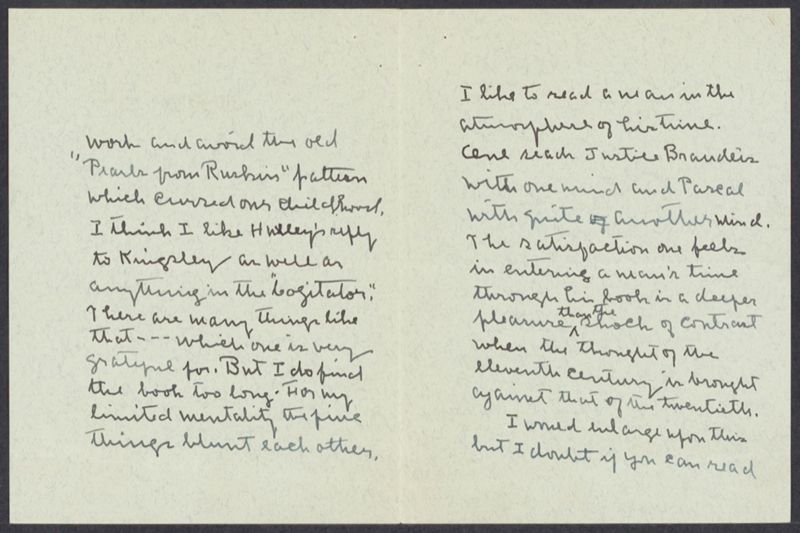 work and avoid the old
"Pearls from Ruskin" pattern
which cursed our childhood.
I think I like Huxley's reply
to Kingsley as well as
anything in the "Cogitator".
There are many things like
that - - - which one is very
grateful for. But I do find
the book too long. For my
limited mentality the fine
things blunt each other.
I like to read a man in the
atmosphere of his time.
One reads Justice Brandeis
with one mind and Pascal
with quite of another mind.
The satisfaction one feels
in entering a man's time
through his book is a deeper
pleasure than the shock of contrast
when the thought of the
eleventh century is brought
against that of the twentieth.
I would enlarge upon this
but I doubt if you can read